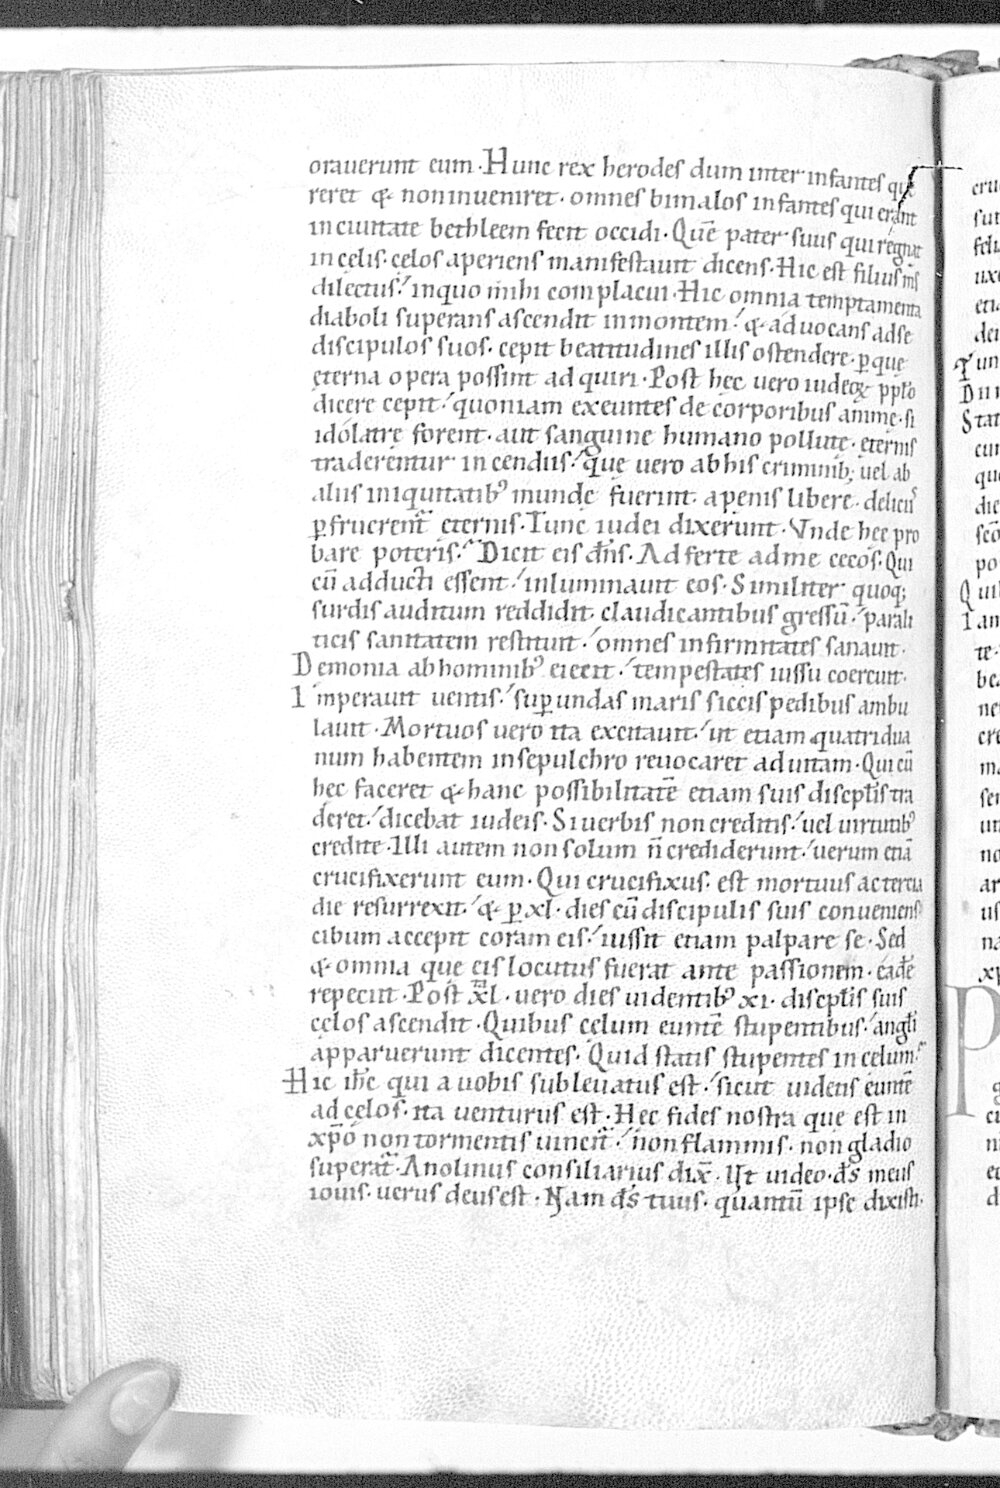 orauerunt eum · Hunc rex herodes dum inter infantes quę
reret & non inueniret · omnes bimatos infantes qui erant
in ciuitate bethleem fecit occidi · Quē pater suus qui regnat
in celis · celos aperiens manifestauit dicens · Hic est filius ms
dilectus / inquo mihi complacui · Hic omnia temptamenta
diaboli superans ascendit inmontem / & aduocans adse
discipulos suos · cepit beatitudines illis ostendere · ꝑ quę
ęterna opera possint adquiri · Post hęc uero iudeoꝝ ppl̄o
dicere cepit / quoniam exeuntes de corporibus animę · si
idolatrę forent · aut sanguine humano pollutę · ęternis
traderentur incendiis / quę uero ab his criminib; uel ab
aliis iniquitatib⁹ mundę fuerint · a penis liberę · deliciis
ꝑfruerent᷑ ęternis · Tunc iudei dixerunt · Vnde hec pro
bare poteris · Dicit eis dn̄s · Ad ferte ad me cecos · Qui
cū adducti essent / inluminauit eos · Similiter quoq;
surdis auditum reddidit · claudicantibus gressū / parali
ticis sanitatem restituit / omnes infirmitates sanauit ·
Demonia ab hominib⁹ eiecit / tempestates iussu coercuit ·
Imperauit uentis / suꝑ undas maris siccis pedibus ambu
lauit · Mortuos uero ita excitauit / ut etiam quatridua
num habentem in sepulchro reuocaret ad uitam · Qui cū
hęc faceret & hanc possibilitatē etiam suis discipl̄is tra
deret / dicebat iudeis · Si uerbis non creditis / uel uirtutib⁹
credite · Illi autem non solum n̄ crediderunt / uerum etiā
crucifixerunt eum · Qui crucifixus · est mortuus ac tertia
die resurrexit / & ꝑ xl · dies cū discipulis suis conueniens
cibum accepit coram eis / iussit etiam palpare se · Sed
& omnia que eis locutus fuerat ante passionem · eadē
repeciit · Post xl · uero dies uidentib⁹ xi · discipl̄is suis
celos ascendit · Quibus celum euntē stupentibus / angl̄i
apparuerunt dicentes · Quid statis stupentes in celum
Hic ih̄c qui a uobis subleuatus est / sicut uidetis euntē
ad celos · ita uenturus est · Hęc fides nostra que est in
xp̄o non tormentis uincit᷑ / non flammis · non gladio
superat᷑ · Anolinus consiliarius dix̄ · Ut uideo · ds̄ meus
iouis · uerus deus est · Nam ds̄ tuus · quantū ipse dixisti ·